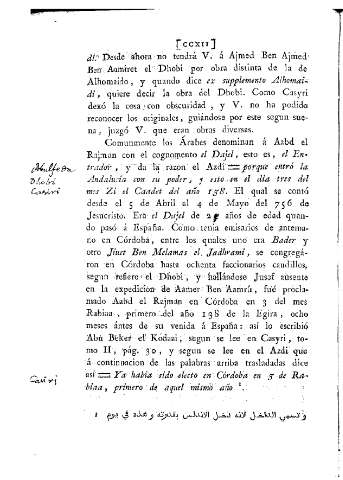 [CCXII]
di. Desde ahora no tendrá V. á Ajmed Ben Ajmed
Ben Aamiret el Dhobi por obra distinta de la de
Alhomaido, y quando dice ex supplemento Alhomai-
di, quiere decir la obra del Dhobi. Como Casyri
dexó la cosa con obscuridad, y V. no ha podido
reconocer los originales, guiándose por este segun sue-
na, juzgó V. que eran obras diversas.
Comunmente los Árabes denominan á Aabd el
Rajman con el cognomento el Dajel, esto es, el En-
trador, y da la razon el Azdi = porque entró la
Andalucía con su poder, y esto en el dia tres del
mes Zi el Caadet del año 138. El qual se contó
desde el 5 de Abril al 4 de Mayo del 756 de
Jesucristo. Era el Dajel de años de edad quan-
do pasó á España. Como tenia emisarios de antema-
no en Córdoba, entre los quales uno era Bader y
otro Jiuet Ben Melamas el Jadhrami, se congregá-
ron en Córdoba hasta ochenta faccionarios caudillos,
segun refiere el Dhobi, y hallándose Jusaf ausente
en la expedicion de Aamer Ben Aamrú, fué procla-
mado Aabd el Rajman en Córdoba en 3 del mes
Rabiaa, primero del año 138 de la Egira, ocho
meses ántes de su venida á España: así lo escribió
Abú Beker el Kodaai, segun se lee en Casyri, to-
mo II, pág. 30, y segun se lee en el Azdi que
á continuacion de las palabras arriba trasladadas dice
así = Ya habia sido electo en Córdoba en 3 de Ra-
biaa, primero de aquel mismo año ¹.
Dhobi
Casiri
Casiri
1 وتسمى الداخل لانه دخل الاندلس بقدرته وهذه في يوم